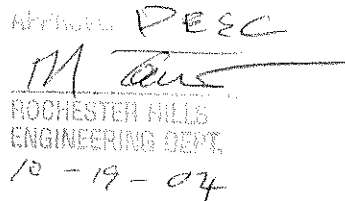 APPROVED DEEC
ROCHESTER HILLS
ENGINEERING DEPT.
10-19-04